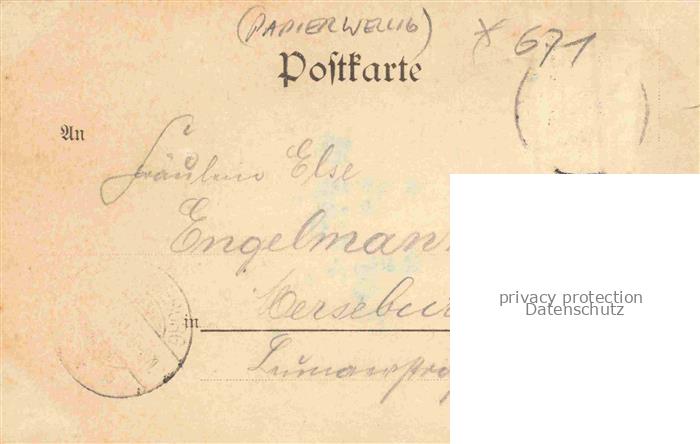 (PAPIERWELLIG)
* 671
Postkarte
An
Fräulein Else
Engelmann
in Mersebur
privacy protection
Datenschutz